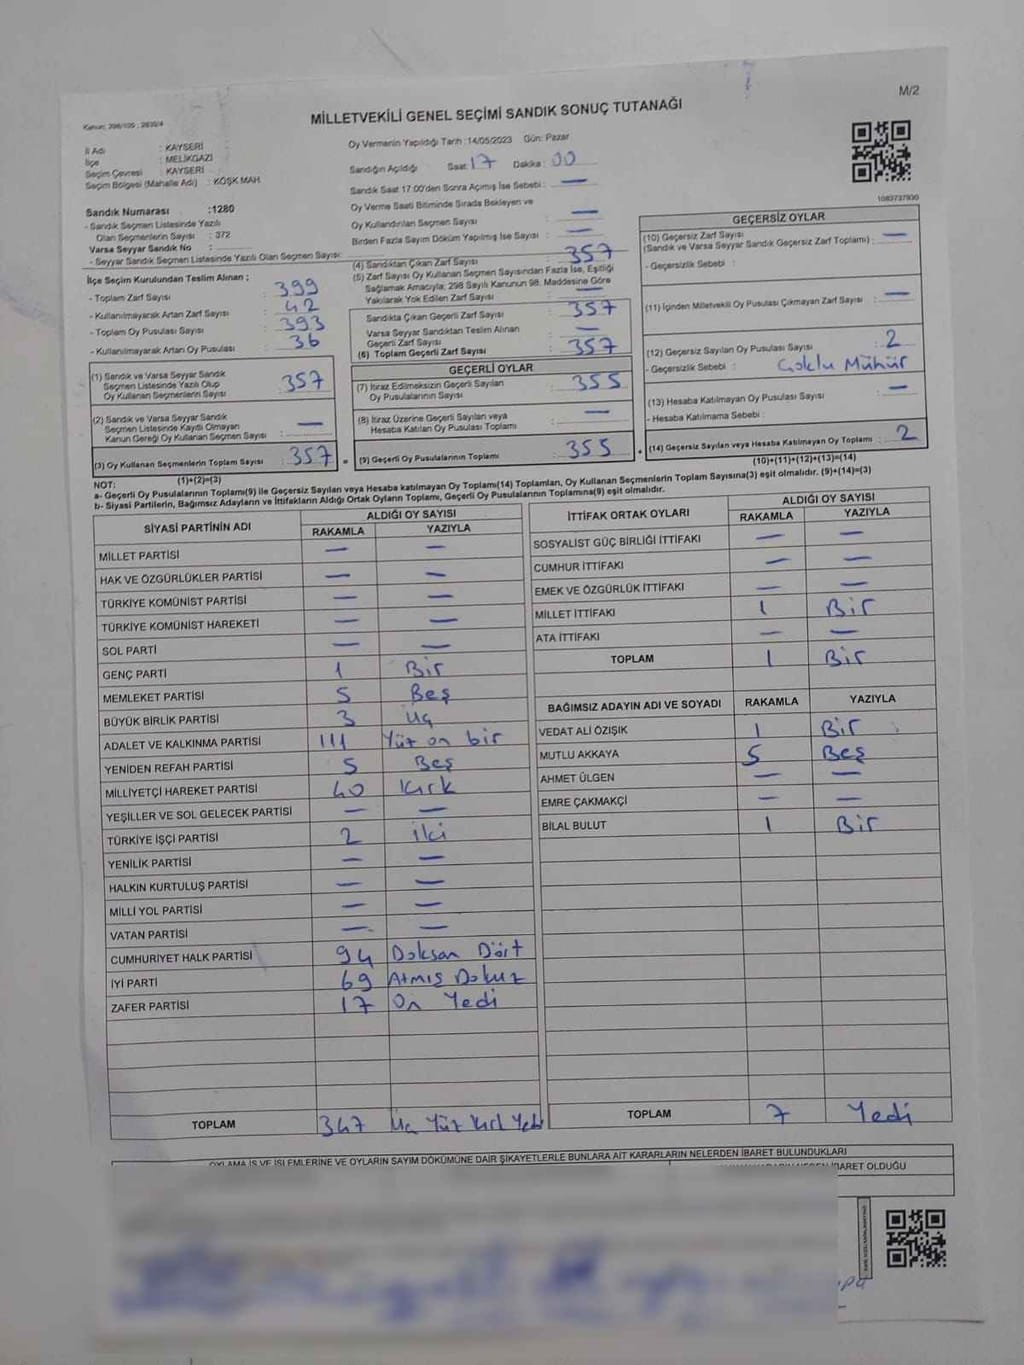 M/2
MİLLETVEKİLİ GENEL SEÇİMİ SANDIK SONUÇ TUTANAĞI
Kanun: 298/105 ; 2839/4
İl Adı : KAYSERİ
İlçe : MELİKGAZİ
Seçim Çevresi : KAYSERİ
Seçim Bölgesi (Mahalle Adı) : KÖŞK MAH.
Oy Vermenin Yapıldığı Tarih :14/05/2023 Gün: Pazar
Sandığın Açıldığı Saat: 17 Dakika : 00
Sandık Saat 17:00'den Sonra Açımış İse Sebebi : —
Oy Verme Saati Bitiminde Sırada Bekleyen ve
Oy Kullandırılan Seçmen Sayısı : —
Birden Fazla Sayım Döküm Yapılmış İse Sayısı : —
1083737930
Sandık Numarası :1280
- Sandık Seçmen Listesinde Yazılı
Olan Seçmenlerin Sayısı : 372
Varsa Seyyar Sandık No :
- Seyyar Sandık Seçmen Listesinde Yazılı Olan Seçmen Sayısı:
İlçe Seçim Kurulundan Teslim Alınan ;
- Toplam Zarf Sayısı : 399
- Kullanılmayarak Artan Zarf Sayısı : 42
- Toplam Oy Pusulası Sayısı : 393
- Kullanılmayarak Artan Oy Pusulası : 36
(1) Sandık ve Varsa Seyyar Sandık
Seçmen Listesinde Yazılı Olup
Oy Kullanan Seçmenlerin Sayısı : 357
(2) Sandık ve Varsa Seyyar Sandık
Seçmen Listesinde Kaydı Olmayan
Kanun Gereği Oy Kullanan Seçmen Sayısı : —
(3) Oy Kullanan Seçmenlerin Toplam Sayısı : 357
(1)+(2)=(3)
(4) Sandıktan Çıkan Zarf Sayısı : 357
(5) Zarf Sayısı Oy Kullanan Seçmen Sayısından Fazla İse, Eşitliği
Sağlamak Amacıyla; 298 Sayılı Kanunun 98. Maddesine Göre
Yakılarak Yok Edilen Zarf Sayısı : —
Sandıkta Çıkan Geçerli Zarf Sayısı : 357
Varsa Seyyar Sandıktan Teslim Alınan
Geçerli Zarf Sayısı : —
(6) Toplam Geçerli Zarf Sayısı : 357
GEÇERLİ OYLAR
(7) İtiraz Edilmeksizin Geçerli Sayılan
Oy Pusulalarının Sayısı : 355
(8) İtiraz Üzerine Geçerli Sayılan veya
Hesaba Katılan Oy Pusulası Toplamı : —
= (9) Geçerli Oy Pusulalarının Toplamı : 355
GEÇERSİZ OYLAR
(10) Geçersiz Zarf Sayısı
(Sandık ve Varsa Seyyar Sandık Geçersiz Zarf Toplamı) : —
- Geçersizlik Sebebi :
(11) İçinden Milletvekili Oy Pusulası Çıkmayan Zarf Sayısı : —
(12) Geçersiz Sayılan Oy Pusulası Sayısı : 2
- Geçersizlik Sebebi : Çoklu Mühür
(13) Hesaba Katılmayan Oy Pusulası Sayısı : —
- Hesaba Katılmama Sebebi :
+ (14) Geçersiz Sayılan veya Hesaba Katılmayan Oy Toplamı : 2
(10)+(11)+(12)+(13)=(14)
NOT:
a- Geçerli Oy Pusulalarının Toplamı(9) ile Geçersiz Sayılan veya Hesaba katılmayan Oy Toplamı(14) Toplamları, Oy Kullanan Seçmenlerin Toplam Sayısına(3) eşit olmalıdır. (9)+(14)=(3)
b- Siyasi Partilerin, Bağımsız Adayların ve İttifakların Aldığı Ortak Oyların Toplamı, Geçerli Oy Pusulalarının Toplamına(9) eşit olmalıdır.
SİYASİ PARTİNİN ADI ALDIĞI OY SAYISI
RAKAMLA YAZIYLA
MİLLET PARTİSİ — —
HAK VE ÖZGÜRLÜKLER PARTİSİ — —
TÜRKİYE KOMÜNİST PARTİSİ — —
TÜRKİYE KOMÜNİST HAREKETİ — —
SOL PARTİ — —
GENÇ PARTİ 1 Bir
MEMLEKET PARTİSİ 5 Beş
BÜYÜK BİRLİK PARTİSİ 3 üç
ADALET VE KALKINMA PARTİSİ 111 Yüz on bir
YENİDEN REFAH PARTİSİ 5 Beş
MİLLİYETÇİ HAREKET PARTİSİ 40 Kırk
YEŞİLLER VE SOL GELECEK PARTİSİ — —
TÜRKİYE İŞÇİ PARTİSİ 2 iki
YENİLİK PARTİSİ — —
HALKIN KURTULUŞ PARTİSİ — —
MİLLİ YOL PARTİSİ — —
VATAN PARTİSİ — —
CUMHURİYET HALK PARTİSİ 94 Doksan Dört
İYİ PARTİ 69 Atmış Dokuz
ZAFER PARTİSİ 17 On Yedi
TOPLAM 347 Üç Yüz Kırk Yedi
İTTİFAK ORTAK OYLARI ALDIĞI OY SAYISI
RAKAMLA YAZIYLA
SOSYALİST GÜÇ BİRLİĞİ İTTİFAKI — —
CUMHUR İTTİFAKI — —
EMEK VE ÖZGÜRLÜK İTTİFAKI — —
MİLLET İTTİFAKI 1 Bir
ATA İTTİFAKI — —
TOPLAM 1 Bir
BAĞIMSIZ ADAYIN ADI VE SOYADI RAKAMLA YAZIYLA
VEDAT ALİ ÖZIŞIK 1 Bir
MUTLU AKKAYA 5 Beş
AHMET ÜLGEN — —
EMRE ÇAKMAKÇİ — —
BİLAL BULUT 1 Bir
TOPLAM 7 Yedi
OYLAMA İŞ VE İŞLEMLERİNE VE OYLARIN SAYIM DÖKÜMÜNE DAİR ŞİKAYETLERLE BUNLARA AİT KARARLARIN NELERDEN İBARET BULUNDUKLARI
İBARET OLDUĞU